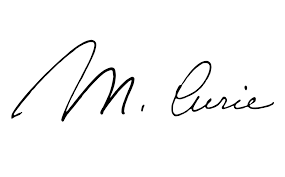 M. Curie